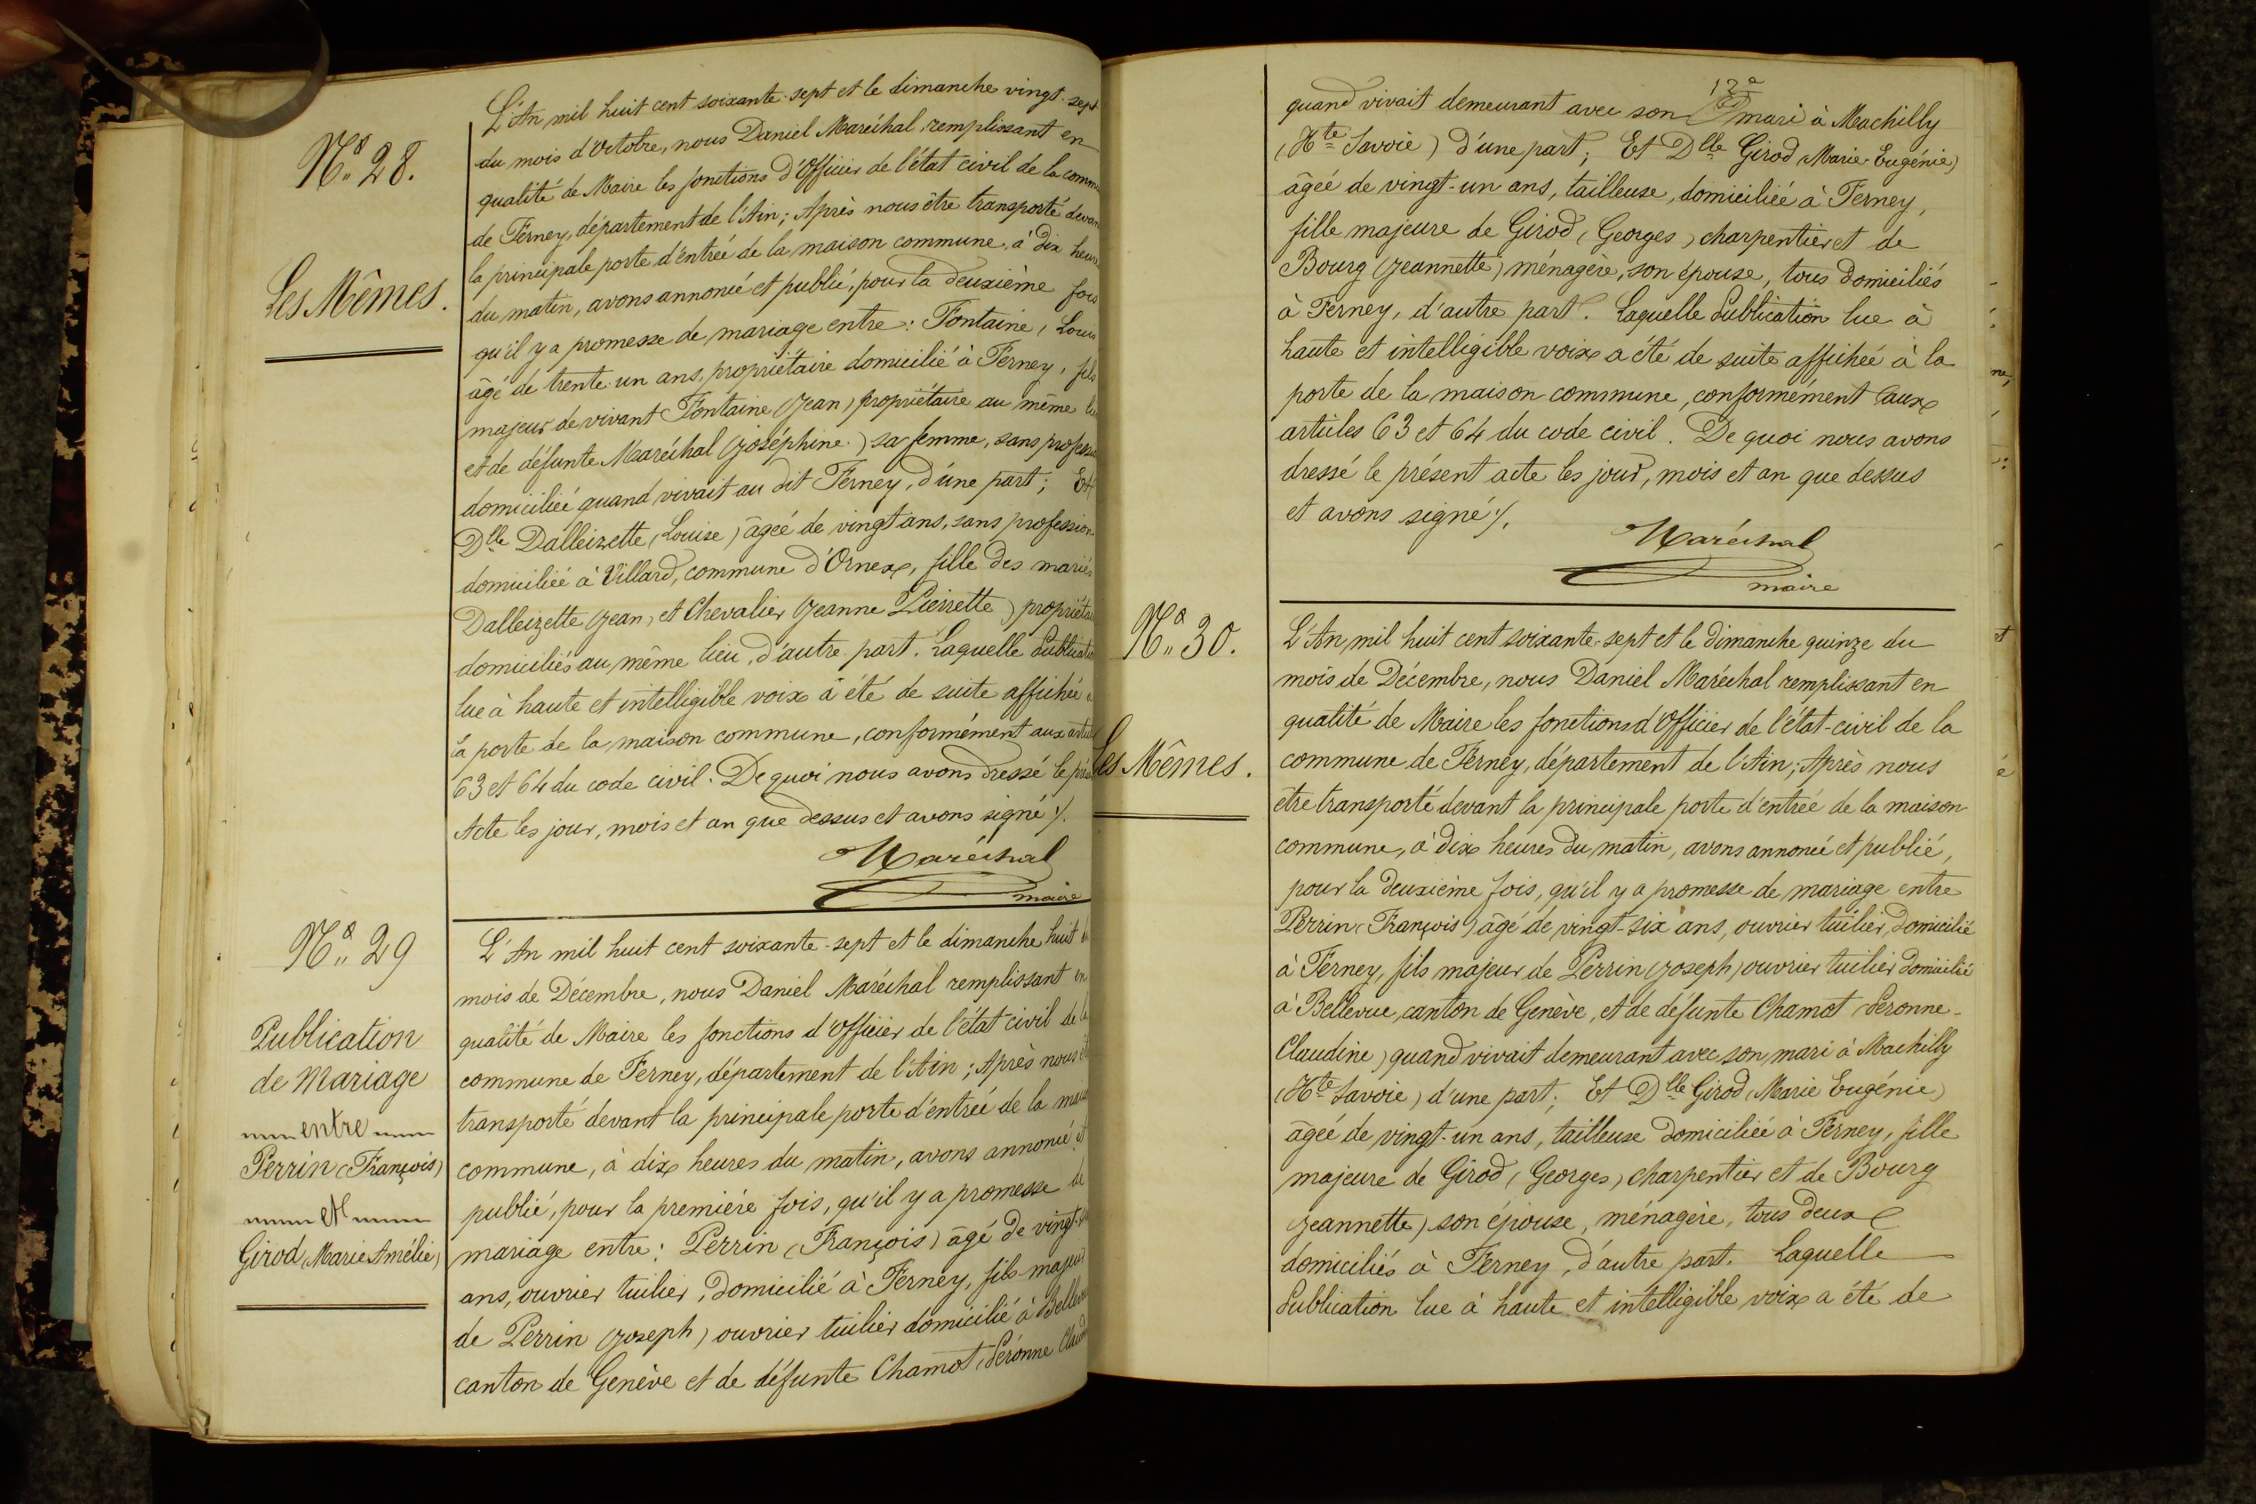 N° 28.
Les Mêmes.
L'An mil huit cent soixante-sept et le dimanche vingt-sept
du mois d'Octobre, nous Daniel Maréchal, remplissant en
qualité de Maire les fonctions d'Officier de l'état civil de la comm
de Ferney, département de l'Ain; Après nous être transporté devan
la principale porte d'entrée de la maison commune, à dix heure
du matin, avons annoncé et publié, pour la deuxième fois
qu'il y a promesse de mariage entre: Fontaine, Louis
âgé de trente-un ans, propriétaire domicilié à Ferney, fils
majeur de vivant Fontaine (Jean) propriétaire au même
et de défunte Maréchal (Joséphine) sa femme, sans profess
domiciliée quand vivait au dit Ferney, d'une part; Et
Dlle Dalleizette (Louise) âgée de vingt ans, sans profession
domiciliée à Villard, commune d'Ornex, fille des mariés
Dalleizette (Jean) et Chevalier (Jeanne Pierrette) propriétai
domiciliés au même lieu, d'autre part. Laquelle Publicati
lue à haute et intelligible voix a été de suite affichée à
la porte de la maison commune, conformément aux artic
63 et 64 du code civil. De quoi nous avons dressé le pré
Acte les jour, mois et an que dessus et avons signé ./.
Maréchal
maire
N° 29
Publication
de Mariage
entre
Perrin (François)
et
Girod (Marie Amélie)
L'An mil huit cent soixante-sept et le dimanche huit d
mois de Décembre, nous Daniel Maréchal remplissant en
qualité de Maire les fonctions d'Officier de l'état civil de la
commune de Ferney, département de l'Ain; Après nous êt
transporté devant la principale porte d'entrée de la mais
commune, à dix heures du matin, avons annoncé et
publié, pour la première fois, qu'il y a promesse de
mariage entre: Perrin (François) âgé de vingt-si
ans, ouvrier tuilier, domicilié à Ferney, fils majeur
de Perrin (Joseph) ouvrier tuilier domicilié à Bellevu
canton de Genève et de défunte Chamot (Péronne Claud
12e
quand vivait demeurant avec son mari à Machilly
(Hte Savoie) d'une part; Et Dlle Girod (Marie Eugénie)
âgée de vingt-un ans, tailleuse, domiciliée à Ferney,
fille majeure de Girod (Georges) charpentier et de
Bourg (Jeannette) ménagère, son épouse, tous domiciliés
à Ferney, d'autre part. Laquelle Publication lue à
haute et intelligible voix a été de suite affichée à la
porte de la maison commune, conformément aux
articles 63 et 64 du code civil. De quoi nous avons
dressé le présent acte les jour, mois et an que dessus
et avons signé ./.
Maréchal
maire
N° 30.
Les Mêmes.
L'An mil huit cent soixante-sept et le dimanche quinze du
mois de Décembre, nous Daniel Maréchal remplissant en
qualité de Maire les fonctions d'Officier de l'état-civil de la
commune de Ferney, département de l'Ain; Après nous
être transporté devant la principale porte d'entrée de la maison
commune, à dix heures du matin, avons annoncé et publié,
pour la deuxième fois, qu'il y a promesse de mariage entre
Perrin (François) âgé de vingt-six ans, ouvrier tuilier, domicilié
à Ferney, fils majeur de Perrin (Joseph) ouvrier tuilier domicilié
à Bellevue, canton de Genève, et de défunte Chamot (Péronne-
Claudine) quand vivait demeurant avec son mari à Machilly
(Hte Savoie) d'une part; Et Dlle Girod (Marie Eugénie)
âgée de vingt-un ans, tailleuse domiciliée à Ferney, fille
majeure de Girod (Georges) charpentier et de Bourg
(Jeannette) son épouse, ménagère, tous deux
domiciliés à Ferney, d'autre part. Laquelle
Publication lue à haute et intelligible voix a été de